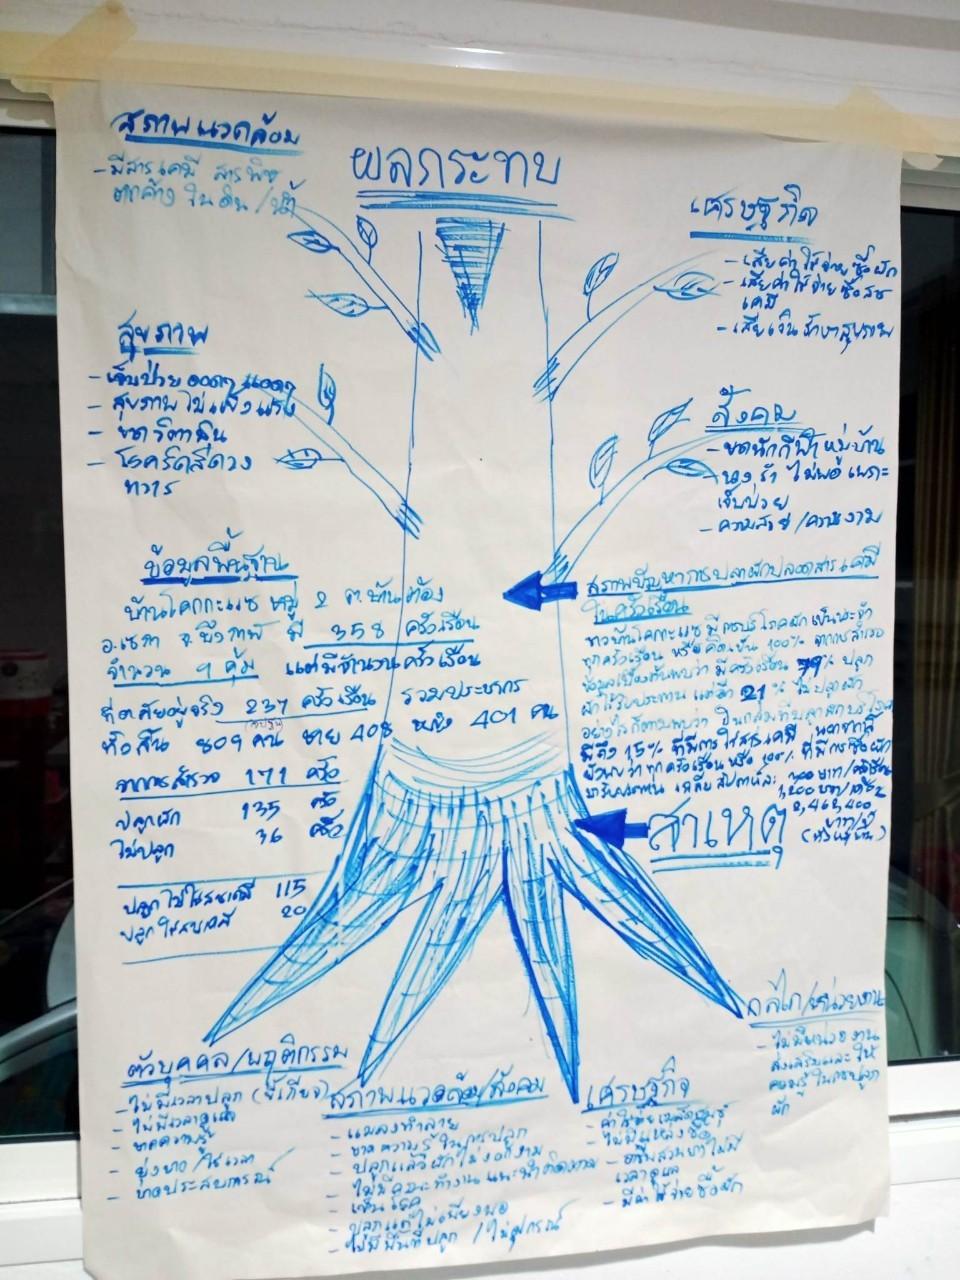 ผลกระทบ
สภาพแวดล้อม
- มีสารเคมี สารพิษ
ตกค้าง ในดิน/น้ำ
เศรษฐกิจ
- เสียค่าใช้จ่ายซื้อผัก
- เสียค่าใช้จ่าย ซื้อสาร
เคมี
- เสียเงินรักษาสุขภาพ
สุขภาพ
- เจ็บป่วย ออดๆ แอดๆ
- สุขภาพไม่แข็งแรง
- ขาดวิตามิน
- โรคริดสีดวง
ทวาร
สังคม
- ขาดนักกีฬาหมู่บ้าน
นางรำ ไม่พอ เพราะ
เจ็บป่วย
- ความสวย/ความงาม
ข้อมูลพื้นฐาน
บ้านโคกกะแซ หมู่ 2 ต.บ้านต้อง
อ.เซกา จ.บึงกาฬ มี 358 ครัวเรือน
จำนวน 9 คุ้ม แต่มีจำนวนครัวเรือน
ที่อาศัยอยู่จริง 237 ครัวเรือน รวมประชากร
ทั้งสิ้น 809 คน ชาย 408 หญิง 401 คน
จากการสำรวจ 171 ครัว
ปลูกผัก 135 ครัว
ไม่ปลูก 36 ครัว
ปลูกไม่ใช้สารเคมี 115
ปลูกใช้สารเคมี 20
สภาพปัญหาการปลูกผักปลอดสารเคมี
ในครัวเรือน
ชาวบ้านโคกกะแซ มีการบริโภคผักเป็นประจำ
ทุกครัวเรือน หรือคิดเป็น 100% จากการสำรวจ
ข้อมูลเบื้องต้นพบว่า มีครัวเรือน 79% ปลูก
ผักไว้รับประทาน แต่อีก 21% ไม่ปลูกผัก
อย่างไรก็ตามพบว่า ในกลุ่มที่ปลูกผักบริโภค
มีถึง 15% ที่มีการใช้สารเคมี นอกจากนี้
ยังพบว่าทุกครัวเรือน หรือ 100% ที่มีการซื้อผัก
มารับประทาน เฉลี่ยสัปดาห์ละ 300 บาท/ครัวเรือน
1,200 บาท/เดือน
2,462,400
บาท/ปี
สาเหตุ
ตัวบุคคล/พฤติกรรม
- ไม่มีเวลาปลูก (ขี้เกียจ)
- ไม่มีเวลาดูแล
- ขาดความรู้
- ยุ่งยาก/ใช้เวลา
- ขาดประสบการณ์
สภาพแวดล้อม/สังคม
- แมลงทำลาย
- ขาดความรู้ในการปลูก
- ปลูกแล้วผักไม่งอกงาม
- ไม่มีคณะทำงาน แนะนำติดตาม
- เป็นโรค
- ปลูกแต่ไม่เพียงพอ
- ไม่มีพื้นที่ปลูก /ไม่อุปกรณ์
เศรษฐกิจ
- ค่าใช้จ่ายเมล็ดพันธุ์
- ไม่มีแหล่งซื้อ
- อาชีพสวนยางไม่มี
เวลาดูแล
- มีค่าใช้จ่ายซื้อผัก
กลไก/หน่วยงาน
- ไม่มีหน่วยงาน
ส่งเสริมและให้
ความรู้ในการปลูก
ผัก